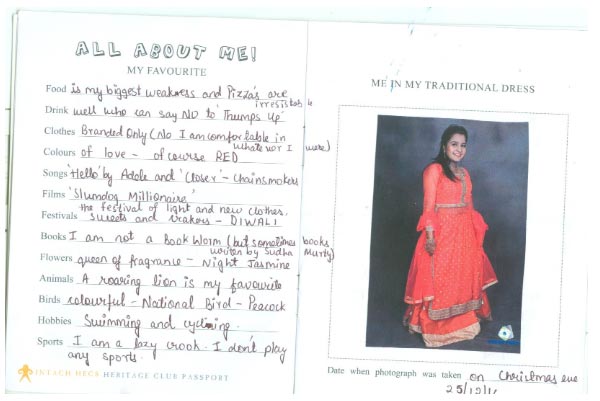 ALL ABOUT ME!
MY FAVOURITE
Food is my biggest weakness and Pizza's are irresistable
Drink well who can say NO to 'Thumps Up'
Clothes Branded Only (No I am comfortable in whatever I wore)
Colours of love - of course RED
Songs 'Hello' by Adele and 'Closer' - Chainsmokers
Films 'Slumdog Millionaire'
the festival of light and new clothes.
Festivals sweets and crakers - DIWALI
Books I am not a Book Worm (but sometimes books written by Sudha Murty)
Flowers queen of fragrance - Night Jasmine
Animals A roaring lion is my favourite
Birds colourful - National Bird - Peacock
Hobbies Swimming and cycling.
Sports I am a lazy crook. I don't play
any sports.
INTACH HECS HERITAGE CLUB PASSPORT
ME IN MY TRADITIONAL DRESS
Date when photograph was taken on Christmas eve
25/12/